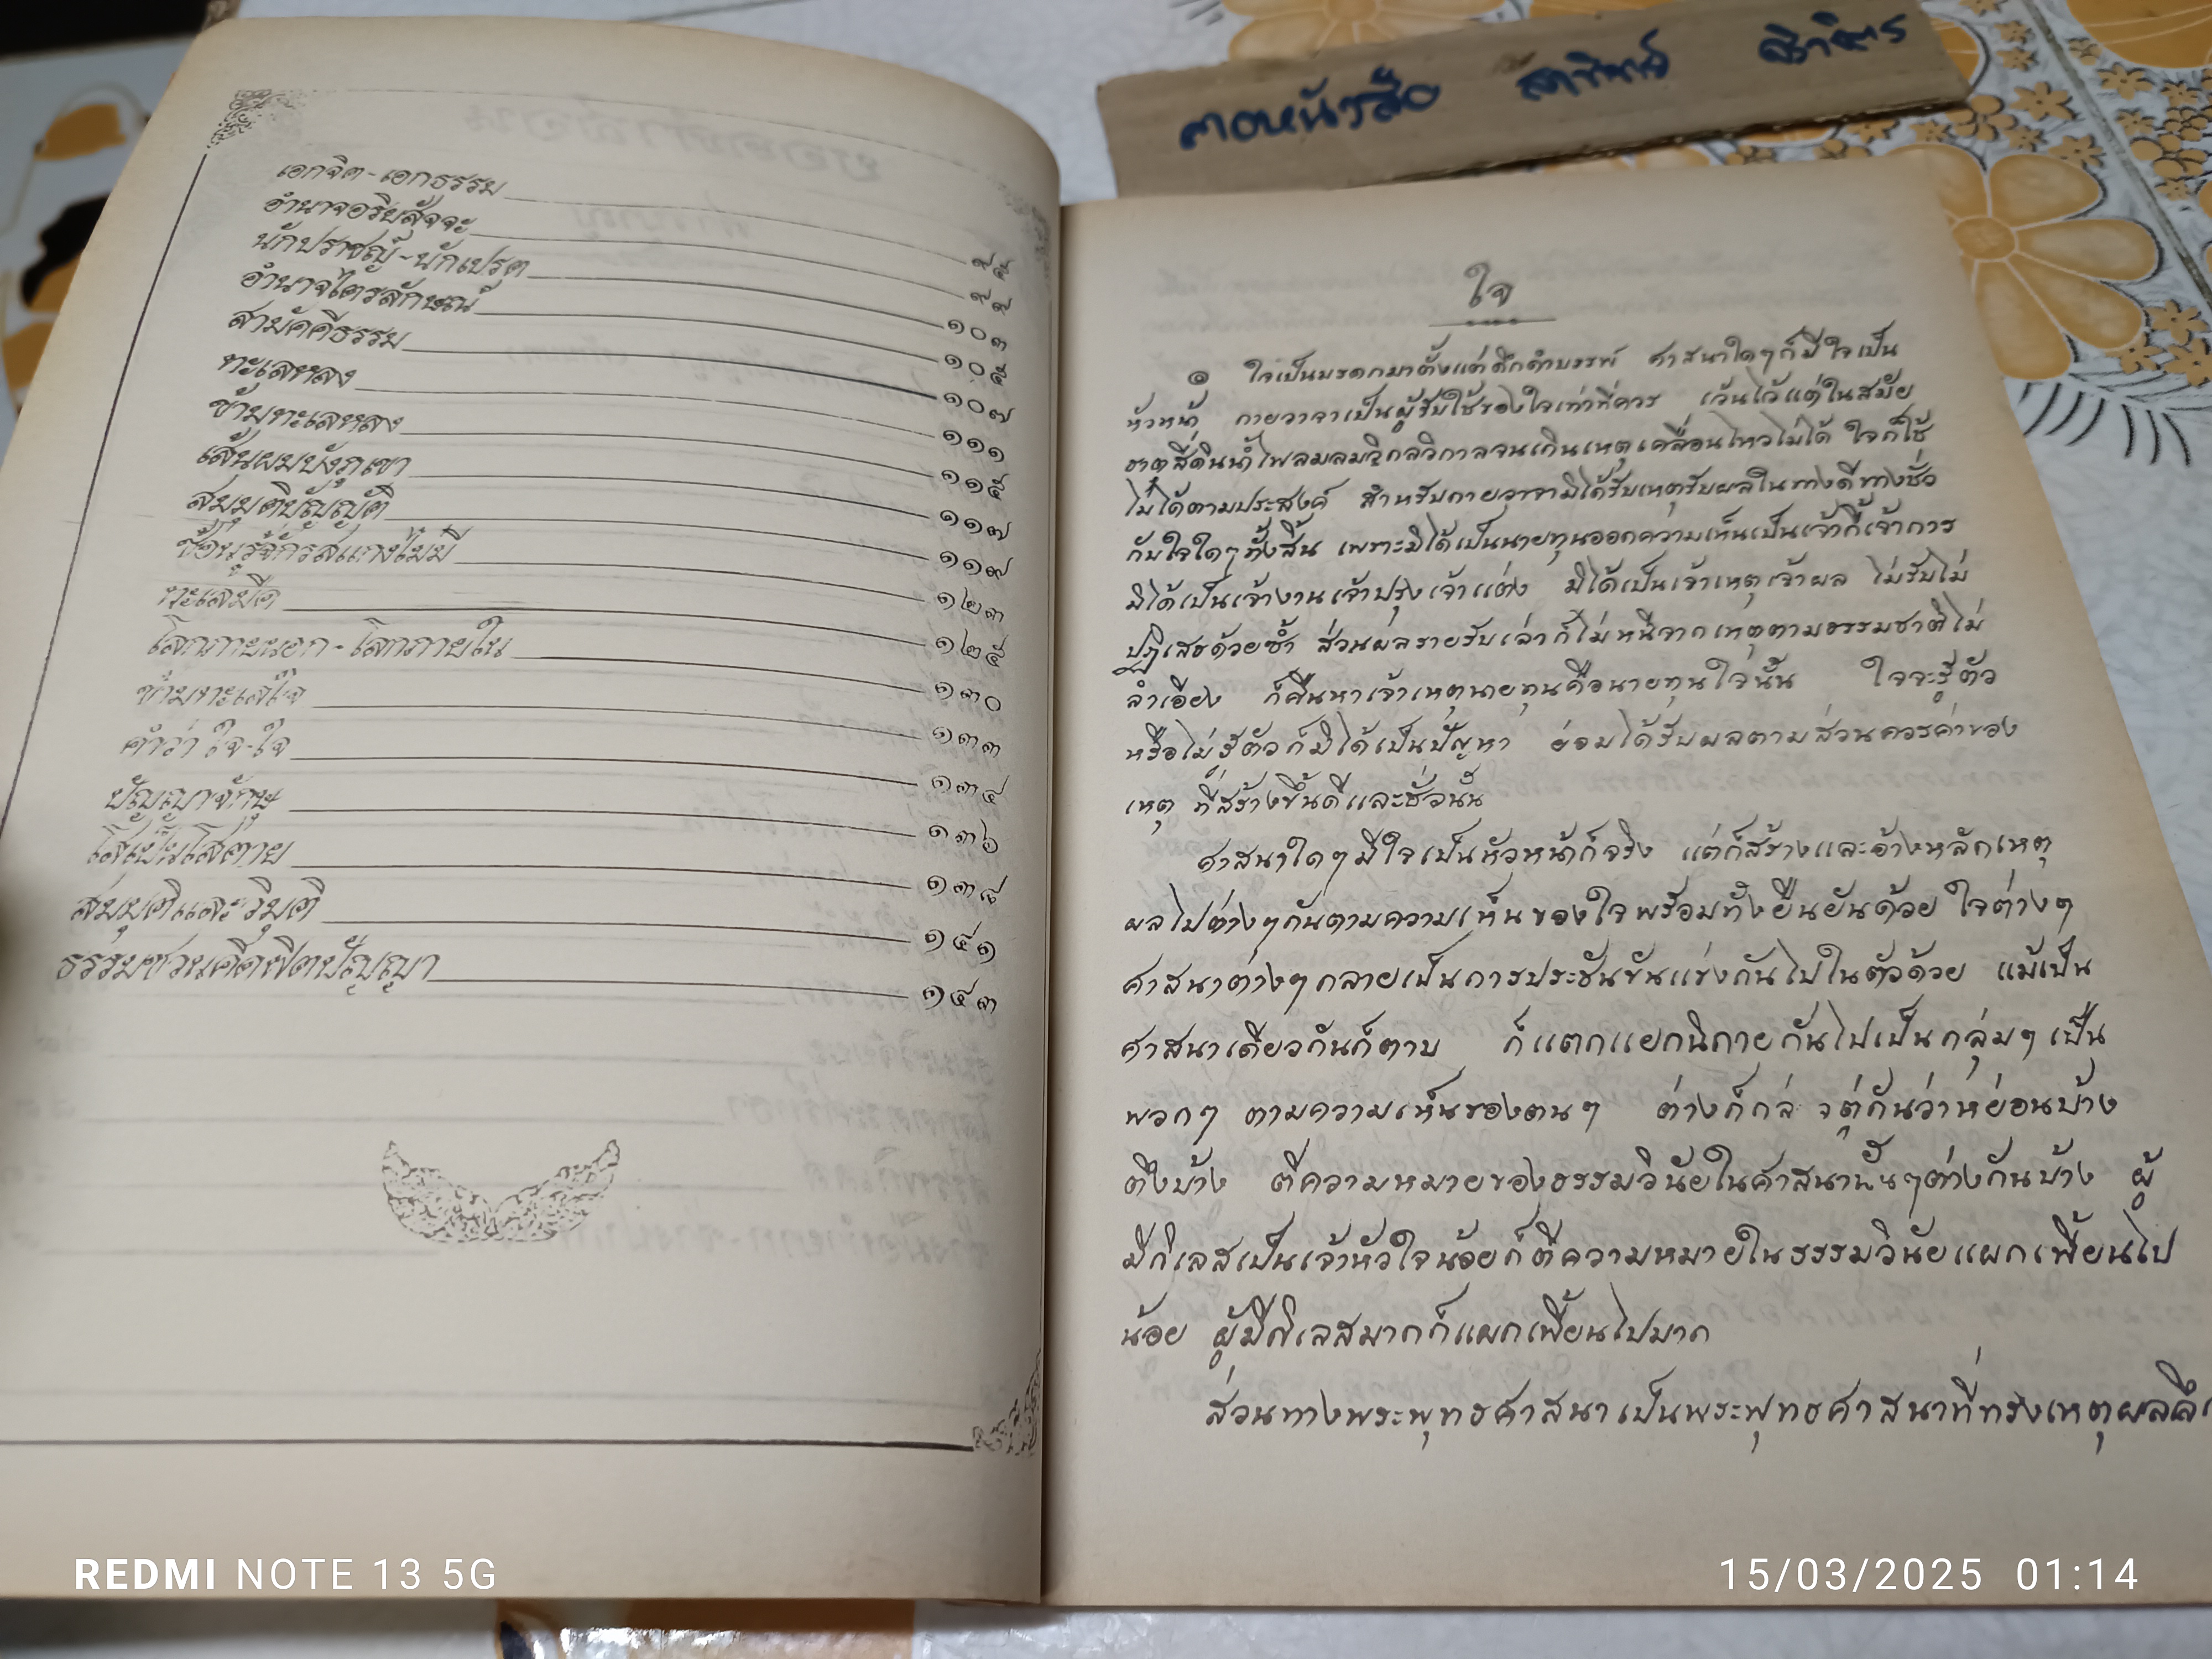 เอกจิต-เอกธรรม ๙๕
อำนาจอริยสัจจะ ๙๙
นักปราชญ์-นักเปรต ๑๐๓
อำนาจไตรลักษณ์ ๑๐๕
สามัคคีธรรม ๑๐๗
ทะเลหลง ๑๑๑
ข้ามทะเลหลง ๑๑๕
เส้นผมบังภูเขา ๑๑๗
สมมุติบัญญัติ ๑๑๙
ช้อนรู้จักรสแกงไม่มี ๑๒๓
ทะเลมืด ๑๒๕
โลกภายนอก-โลกภายใน ๑๓๐
ข้ามทะเลใจ ๑๓๓
คำว่า ใจ-ใจ ๑๓๔
ปัญญาจักษุ ๑๓๖
โสเป็นโสตาย ๑๓๘
สมมุติและวิมุติ ๑๔๑
ธรรมชวนคิดพิตปัญญา ๑๔๓
ใจ
๑ ใจเป็นมรดกมาตั้งแต่ดึกดำบรรพ์ ศาสนาใดๆก็มีใจเป็น
หัวหน้า กายวาจาเป็นผู้รับใช้ของใจเท่าที่ควร เว้นไว้แต่ในสมัย
ธาตุสี่ดินน้ำไฟลมลมวิกลวิกาลจนเกินเหตุเคลื่อนไหวไม่ได้ ใจก็ใช้
ไม่ได้ตามประสงค์ สำหรับกายวาจามิได้รับเหตุรับผลในทางดีทางชั่ว
กับใจใดๆทั้งสิ้น เพราะมิได้เป็นนายทุนออกความเห็นเป็นเจ้ากี้เจ้าการ
มิได้เป็นเจ้างานเจ้าปรุงเจ้าแต่ง มิได้เป็นเจ้าเหตุเจ้าผล ไม่รับไม่
ปฏิเสธด้วยซ้ำ ส่วนผลรายรับเล่าก็ไม่หนีจากเหตุตามธรรมชาติไม่
ลำเอียง ก็คืนหาเจ้าเหตุนายทุนคือนายทุนใจนั้น ใจจะรู้ตัว
หรือไม่รู้ตัวก็มิได้เป็นปัญหา ย่อมได้รับผลตามส่วนควรค่าของ
เหตุ ที่สร้างขึ้นดีและชั่วนั้น
ศาสนาใดๆมีใจเป็นหัวหน้าก็จริง แต่ก็สร้างและอ้างหลักเหตุ
ผลไปต่างๆกันตามความเห็นของใจพร้อมทั้งยืนยันด้วย ใจต่างๆ
ศาสนาต่างๆกลายเป็นการประชันขันแข่งกันไปในตัวด้วย แม้เป็น
ศาสนาเดียวกันก็ตาม ก็แตกแยกนิกายกันไปเป็นกลุ่มๆเป็น
พวกๆ ตามความเห็นของตนๆ ต่างก็กล่ จตู่กันว่าหย่อนบ้าง
ตึงบ้าง ตีความหมายของธรรมวินัยในศาสนานั้นๆต่างกันบ้าง ผู้
มีกิเลสเป็นเจ้าหัวใจน้อยก็ตีความหมายในธรรมวินัยแผกเพี้ยนไป
น้อย ผู้มีกิเลสมากก็แผกเพี้ยนไปมาก
ส่วนทางพระพุทธศาสนาเป็นพระพุทธศาสนาที่ทรงเหตุผลลึก
REDMI NOTE 13 5G
15/03/2025 01:14